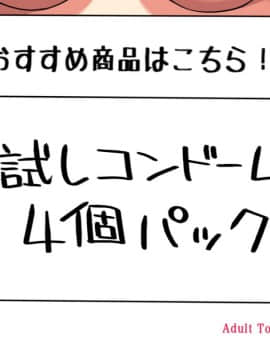 おすすめ商品はこちら！
試しコンドーム
4個パック
Adult To